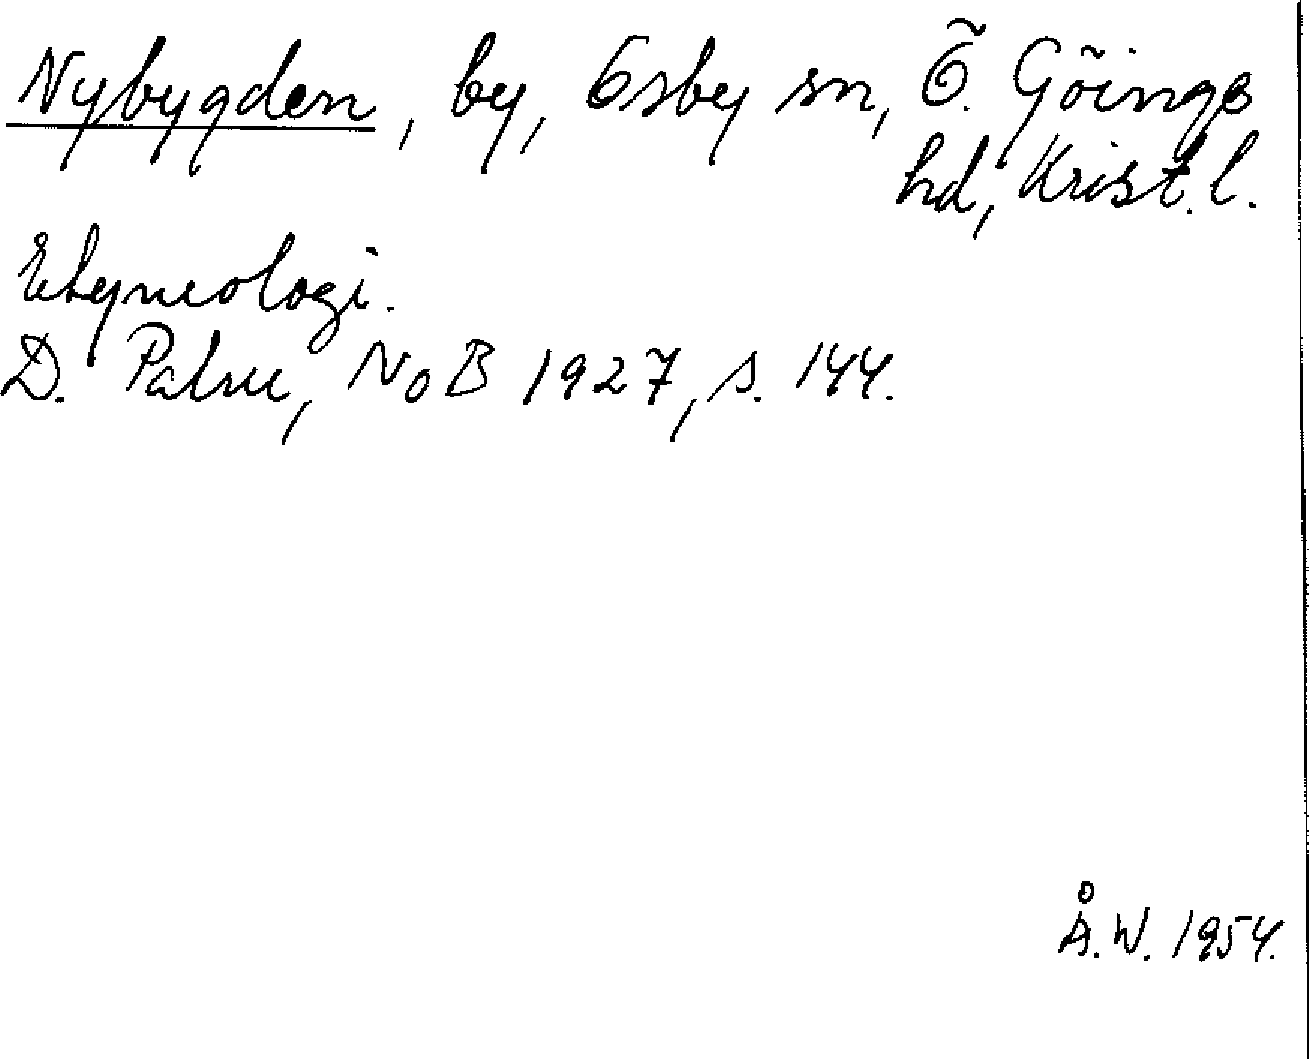 Nybygden, by, Osby sn, Ö. Göinge
hd, Krist. l.
Etymologi.
D. Palm, NoB 1927, s. 144.
Å.W. 1954.